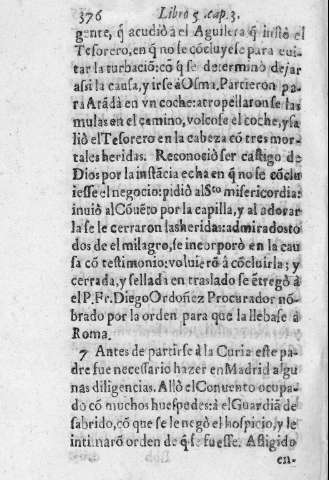 376 Libro 5. cap. 3.
gente, q̃ acudiò à el Aguilera q̃ instò el
Tesorero, en q̃ no se cõcluyese para eui-
tar la turbaciõ: cõ q̃ se determinò dejar
assi la causa, y irse à Osma. Partieron pa-
ra Arãda en vn coche: atropellaron se las
mulas en el camino, volcose el coche, y sa
liò el Tesorero en la cabeza cõ tres mor-
tales heridas. Reconociò ser castigo de
Dios por la instãcia echa en q̃ no se cõclu
iesse el negocio: pidiò al Sto misericordia:
inuiò al Cõuẽto por la capilla, y al adorar
la se le cerraron las heridas: admirados to
dos de el milagro, se incorporò en la cau
sa cõ testimonio: voluierõ à cõcluirla; y
cerrada, y sellada en traslado se ẽtregò à
el P. Fr. Diego Ordoñez Procurador nõ-
brado por la orden para que la llebase à
Roma.
7 Antes de partirse à la Curia este pa-
dre fue necessario hazer en Madrid algu
nas diligencias. Allò el Conuento ocupa-
do cõ muchos huespedes: à el Guardiã de
sabrido, cõ que se le negò el hospicio, y le
intimarõ orden de q̃ se fuesse. Afligido
en-